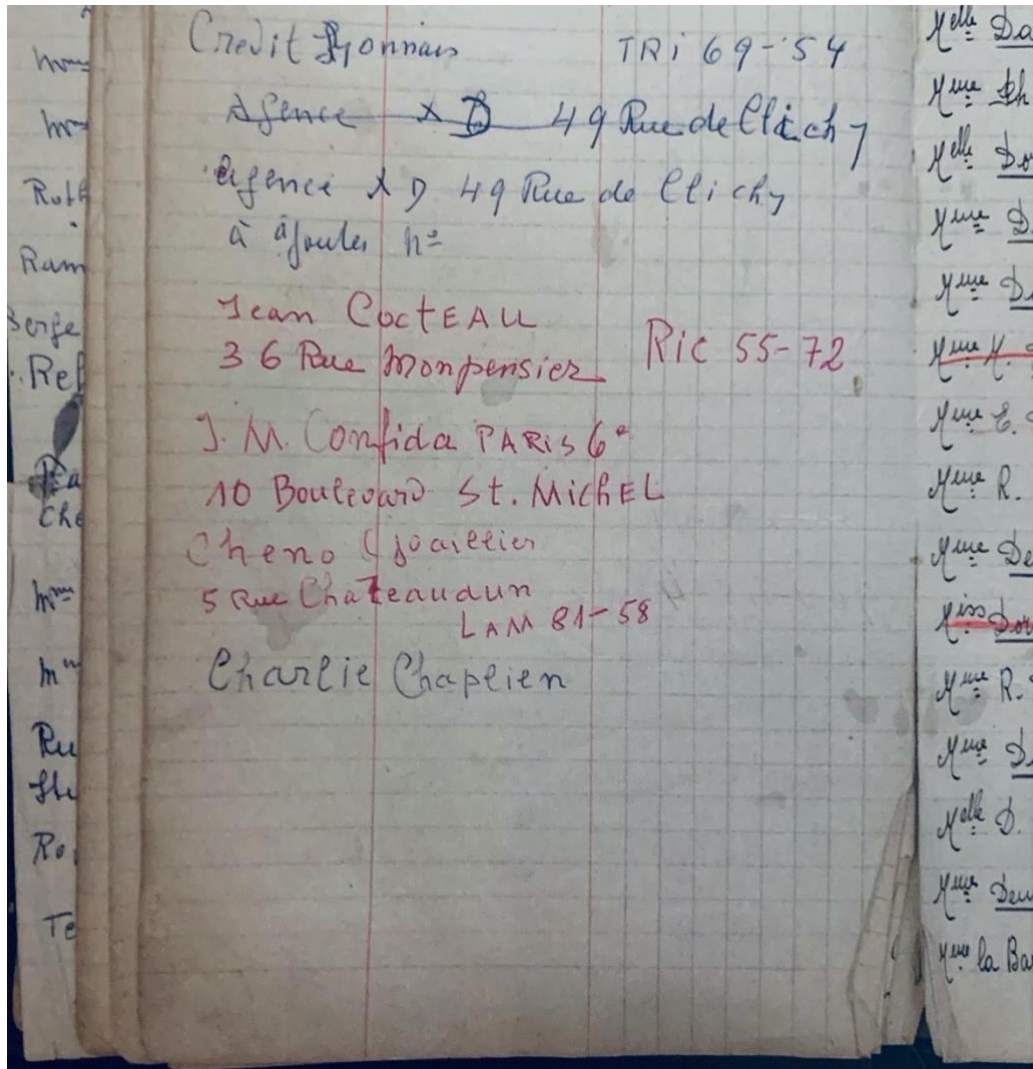 Credit Lyonnais TRi 69-54
Agence X D 49 Rue de Clichy
agence X D 49 Rue de Clichy
à ajouter n°
Jean CocTEAU
36 Rue Monpensier Ric 55-72
J. M. Confida PARiS 6e
10 Boulevard St. MichEL
Cheno (joaillier
5 Rue Chateaudun
LAM 81-58
Charlie Chaplien
mme
Roth
Ram
Serge
Ref
Che
mme
Ru
Ste
Ro
Te
Melle Da
Mme Dh
Melle Do
Mme D.
Mme D
Mme M.
Mme E.
Mme R.
Mme De
Miss Dor
Mme R.
Mme D
Melle D.
Mme Deu
Mme la Ba